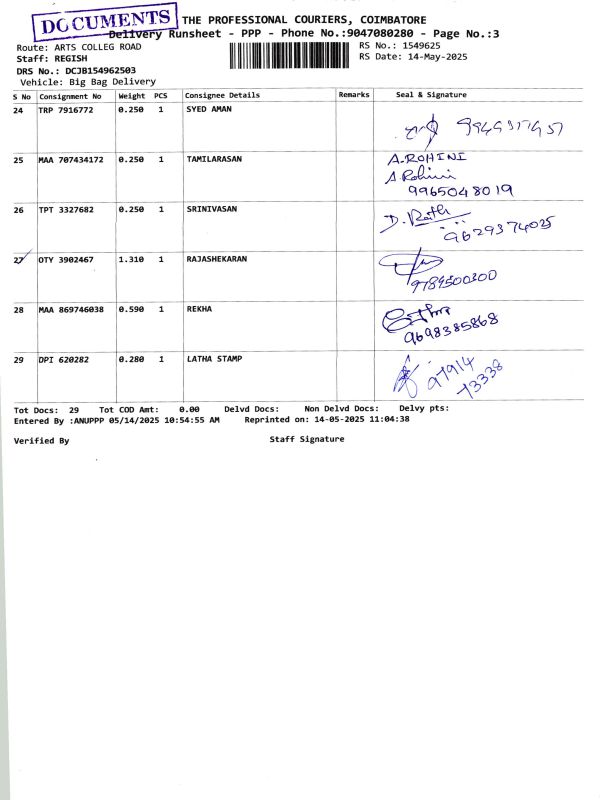 DOCUMENTS
THE PROFESSIONAL COURIERS, COIMBATORE
Delivery Runsheet - PPP - Phone No.:9047080280 - Page No.:3
Route: ARTS COLLEG ROAD
RS No.: 1549625
Staff: REGISH
RS Date: 14-May-2025
DRS No.: DCJB154962503
Vehicle: Big Bag Delivery
S No Consignment No Weight PCS Consignee Details Remarks Seal & Signature
24 TRP 7916772 0.250 1 SYED AMAN
25 MAA 707434172 0.250 1 TAMILARASAN A.ROHINI
A Rohini
9965048019
26 TPT 3327682 0.250 1 SRINIVASAN D.
9629374025
27 OTY 3902467 1.310 1 RAJASHEKARAN
9789500300
28 MAA 869746038 0.590 1 REKHA
9698385868
29 DPI 620282 0.280 1 LATHA STAMP
97914
73338
Tot Docs: 29 Tot COD Amt: 0.00 Delvd Docs: Non Delvd Docs: Delvy pts:
Entered By :ANUPPP 05/14/2025 10:54:55 AM Reprinted on: 14-05-2025 11:04:38
Verified By Staff Signature